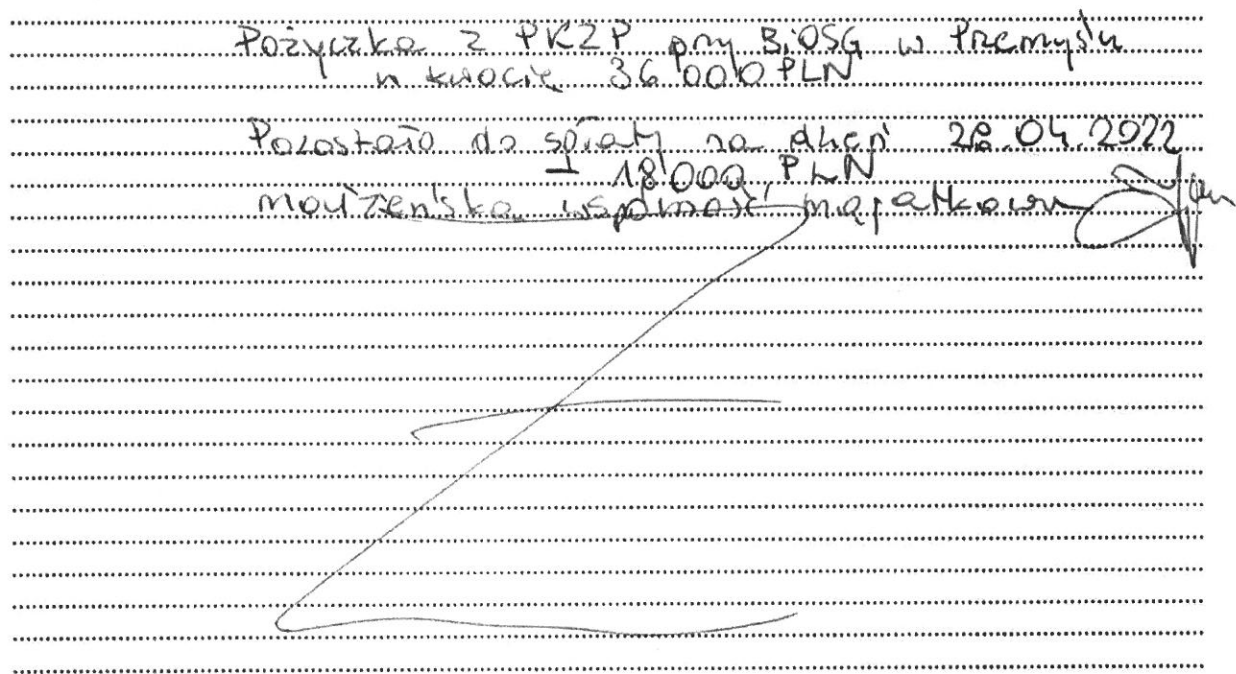 Pożyczka z PKZP przy BiOSG w Przemyślu
w kwocie 36 000 PLN
Pozostało do spłaty na dzień 28.04.2022
- 18 000 PLN
małżeńska wspólność majątkowa